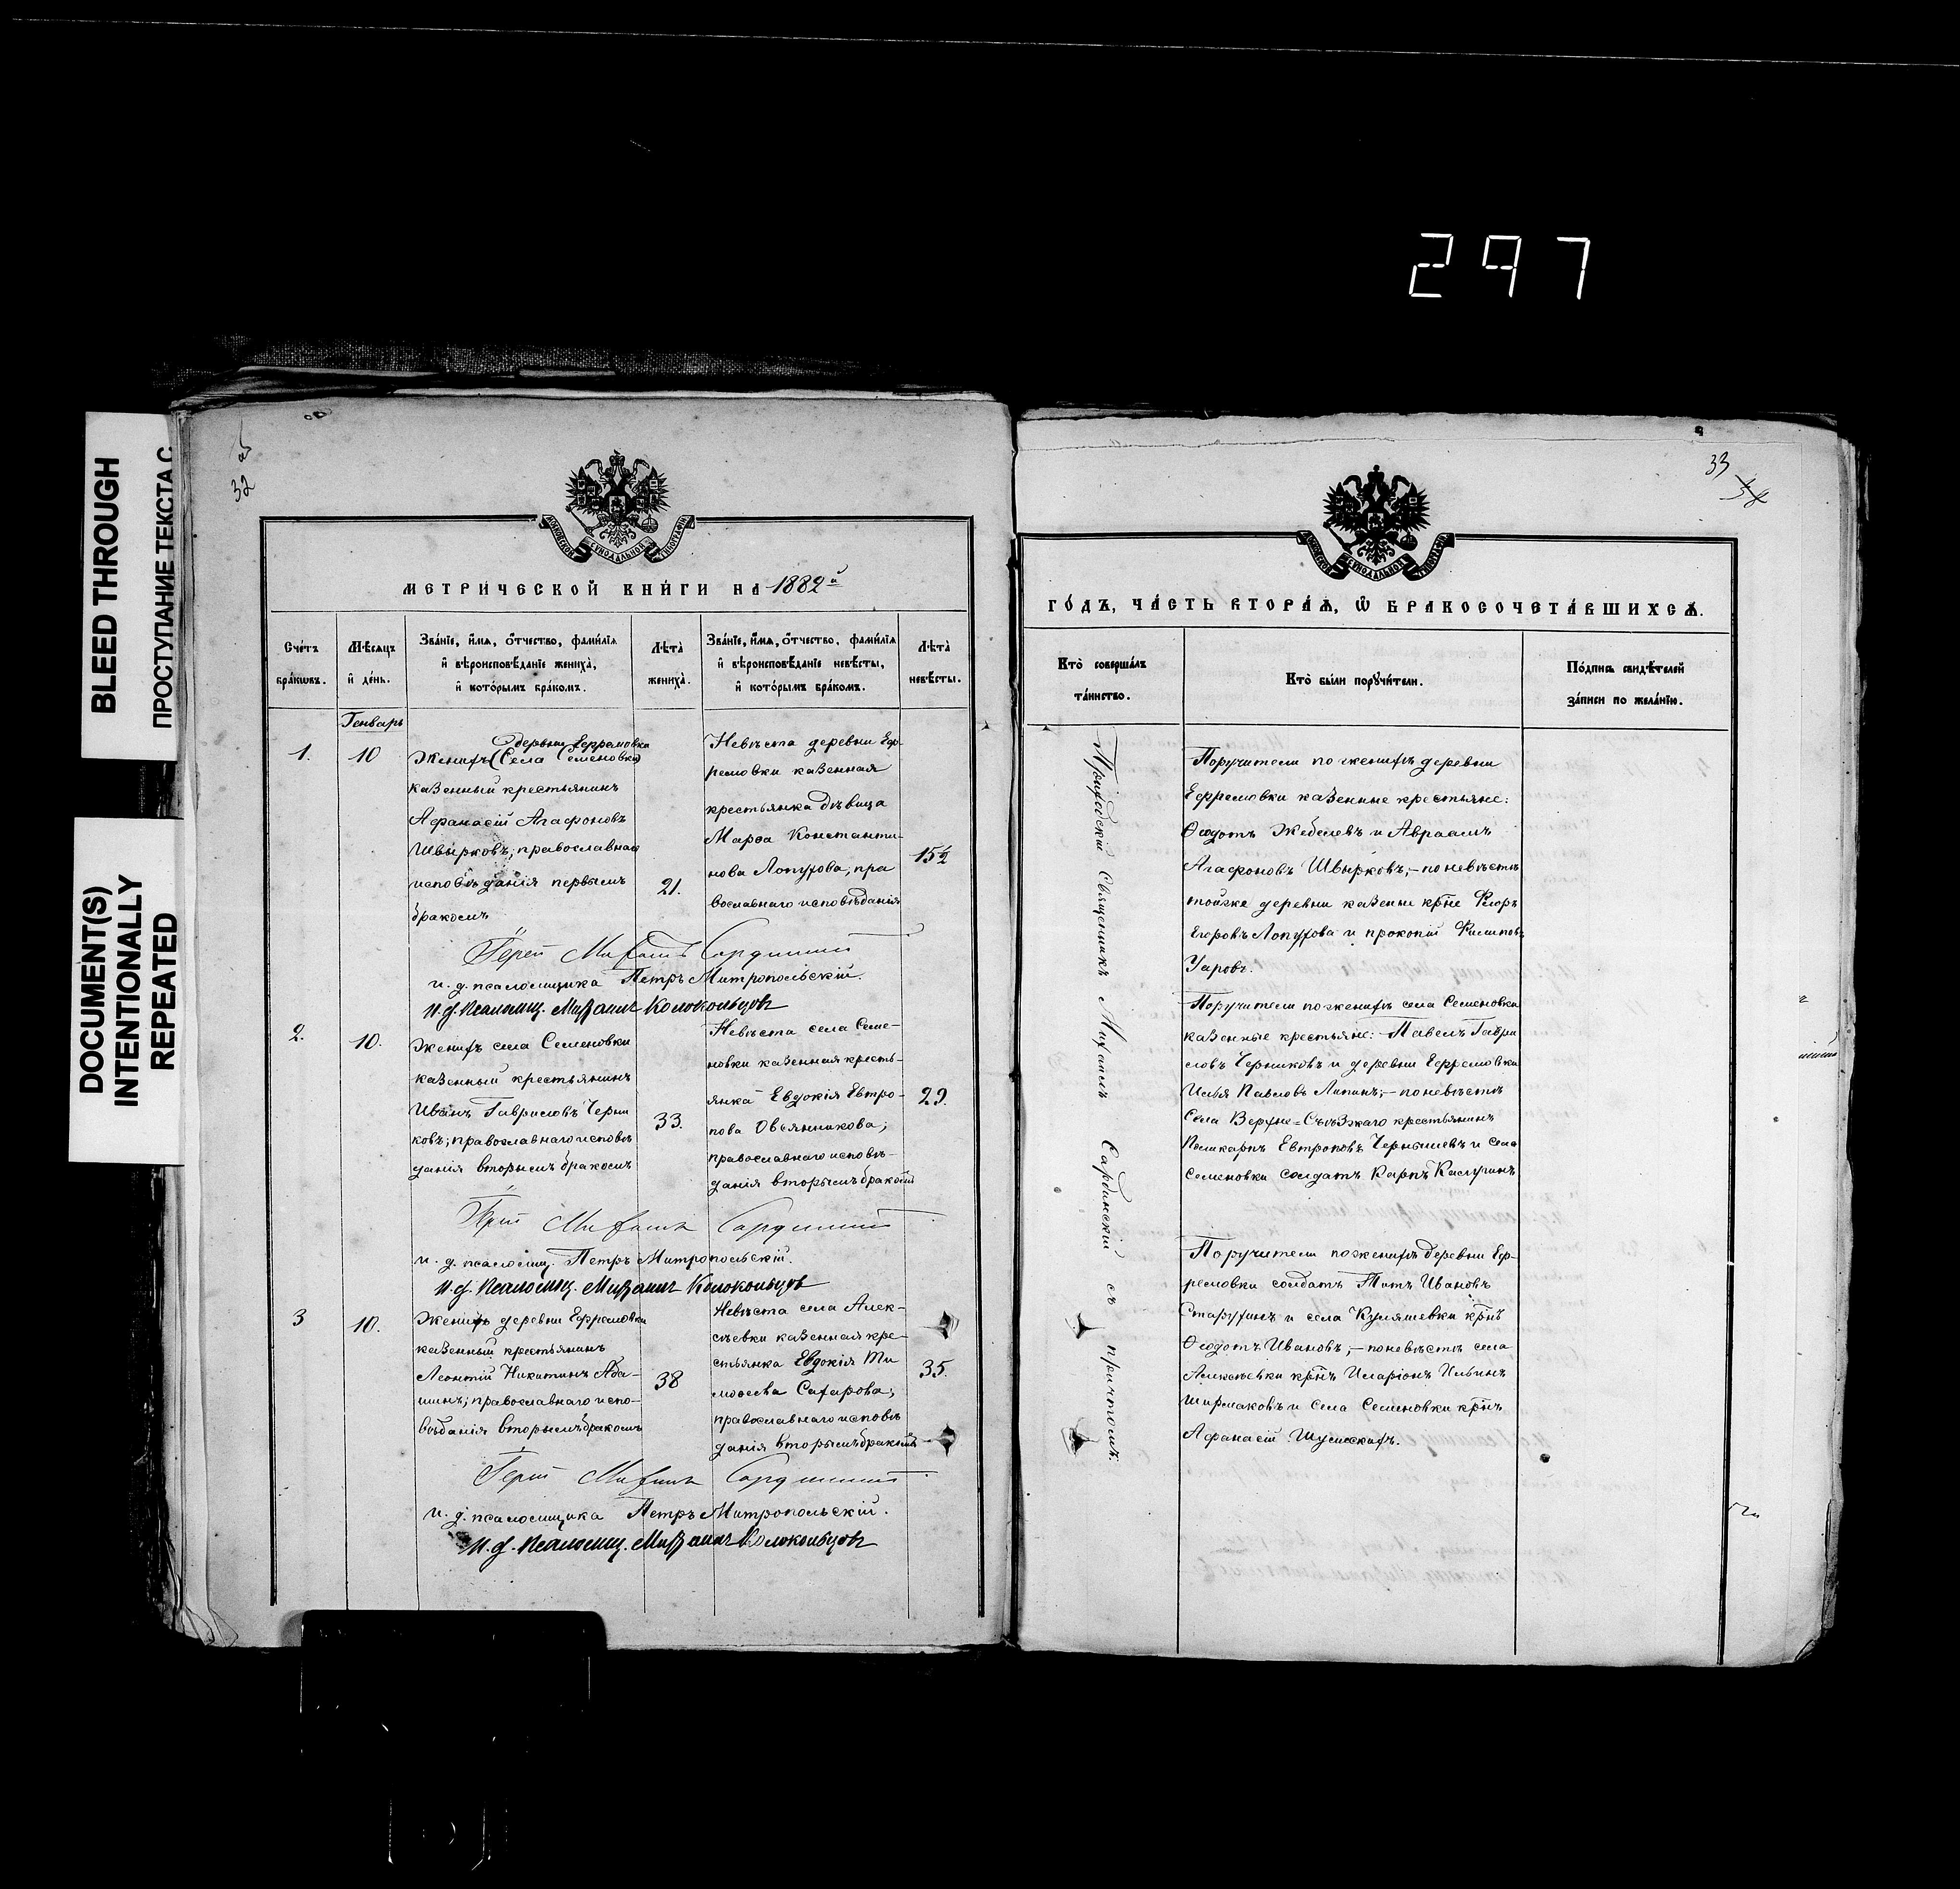 297
BLEED THROUGH
ПРОСТУПАНИЕ ТЕКСТА С
DOCUMENT(S)
INTENTIONALLY
REPEATED
32
МОСКОВСКОЙ СѴНОДАЛЬНОЙ ТИПОГРАФІИ
МЕТРИЧЕСКОЙ КНИГИ НА 1882й
Счетъ браковъ.
Мѣсяцъ и день.
Званіе, имя, отчество, фамилія
и вѣроисповѣданіе жениха,
и которымъ бракомъ.
Лѣта
жениха.
Званіе, имя, отчество, фамилія
и вѣроисповѣданіе невѣсты,
и которымъ бракомъ.
Лѣта
невѣсты.
Генварь
1.
10
деревни Ефремовки
Женихъ (Села Семеновки)
казенный крестьянинъ
Афанасій Агафоновъ
Швырковъ; православнаго
исповѣданія первымъ
бракомъ
21.
Невѣста деревни Еф-
ремовки казенная
крестьянка дѣвица
Марѳа Константи-
нова Лопухова, пра
вославнаго исповѣданія
15½
Іерей Михаилъ Сардинскій
и. д. псаломщика Петръ Митропольскій.
И.д. Псаломщ. Михаилъ Колокольцовъ
2.
10.
Женихъ села Семеновки
казенный крестьянинъ
Иванъ Гавриловъ Черни
ковъ; православнаго исповѣ
данія вторымъ бракомъ
33.
Невѣста села Семе-
новки казенная кресть-
янка Евдокія Евтро-
пова Овсянникова;
православнаго исповѣ-
данія вторымъ бракомъ
29.
Іерей Михаилъ Сардинскій
и. д. псаломщ. Петръ Митропольскій.
И.д. Псаломщ. Михаилъ Колокольцовъ
3
10.
Женихъ деревни Ефремовки
казенный крестьянинъ
Леонтій Никитинъ Аба-
шинъ; православнаго испо-
вѣданія вторымъ бракомъ
38
Невѣста села Алек-
сѣевки казенная кре-
стьянка Евдокія Ти
моѳеева Сахарова;
православнаго исповѣ
данія вторымъ бракомъ
35.
Іерей Михаилъ Сардинскій
и. д. псаломщика Петръ Митропольскій.
И.д. Псаломщ. Михаилъ Колокольцовъ
33
МОСКОВСКОЙ СѴНОДАЛЬНОЙ ТИПОГРАФІИ
ГОДЪ, ЧАСТЬ ВТОРАЯ, Ѡ БРАКОСОЧЕТАВШИХСЯ.
Кто совершалъ
таинство.
Кто были поручители.
Подпись свидѣтелей
записи по желанію.
Приходскій Священникъ Михаилъ Сардинскій съ причтомъ.
Поручители по женихѣ деревни
Ефремовки казенные крестьяне:
Ѳедотъ и Авраамъ
Агафоновъ Швырковъ; – по невѣстѣ
тойже деревни казенные крне Флоръ
Егоровъ Лопухова и прокопій Филипповъ
Уаровъ.
Поручители по женихѣ села Семеновки
казенные крестьяне: Павелъ Гаври
ловъ Черниковъ и деревни Ефремовки
Илья Павловъ Липинъ; – по невѣстѣ
Села Верхне=Съѣзжаго крестьянинъ
Поликарпъ Евтроповъ Чернышевъ и села
Семеновки солдатъ Карпъ
Поручители по женихѣ деревни Еф-
ремовки солдатъ Титъ Ивановъ
Старухинъ и села Куляшевки крнъ
Ѳедотъ Ивановъ; – по невѣстѣ села
Алексѣевки крнъ Иларіонъ Ильинъ
Ширшаковъ и Села Семеновки крнъ
Афанасій